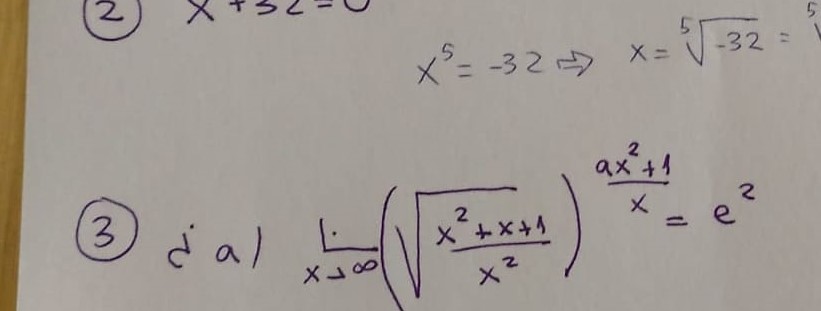 ② x⁵+32=0
x⁵ = -32 ⇒ x = ⁵√-32 = ⁵√
③ ¿ a / lim x→∞ (√((x²+x+1)/x²))^((ax²+1)/x) = e²